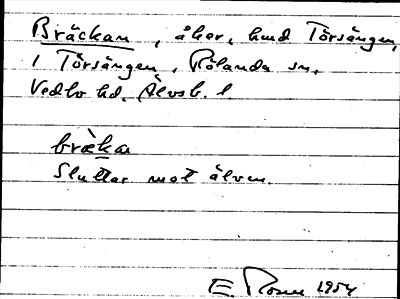 Bräckan, åker, hmd Törsängen,
1 Törsängen, Rölanda sn,
Vedbo hd, Älvsb. l
bräka
Sluttar mot älven.
E Rosen 1954